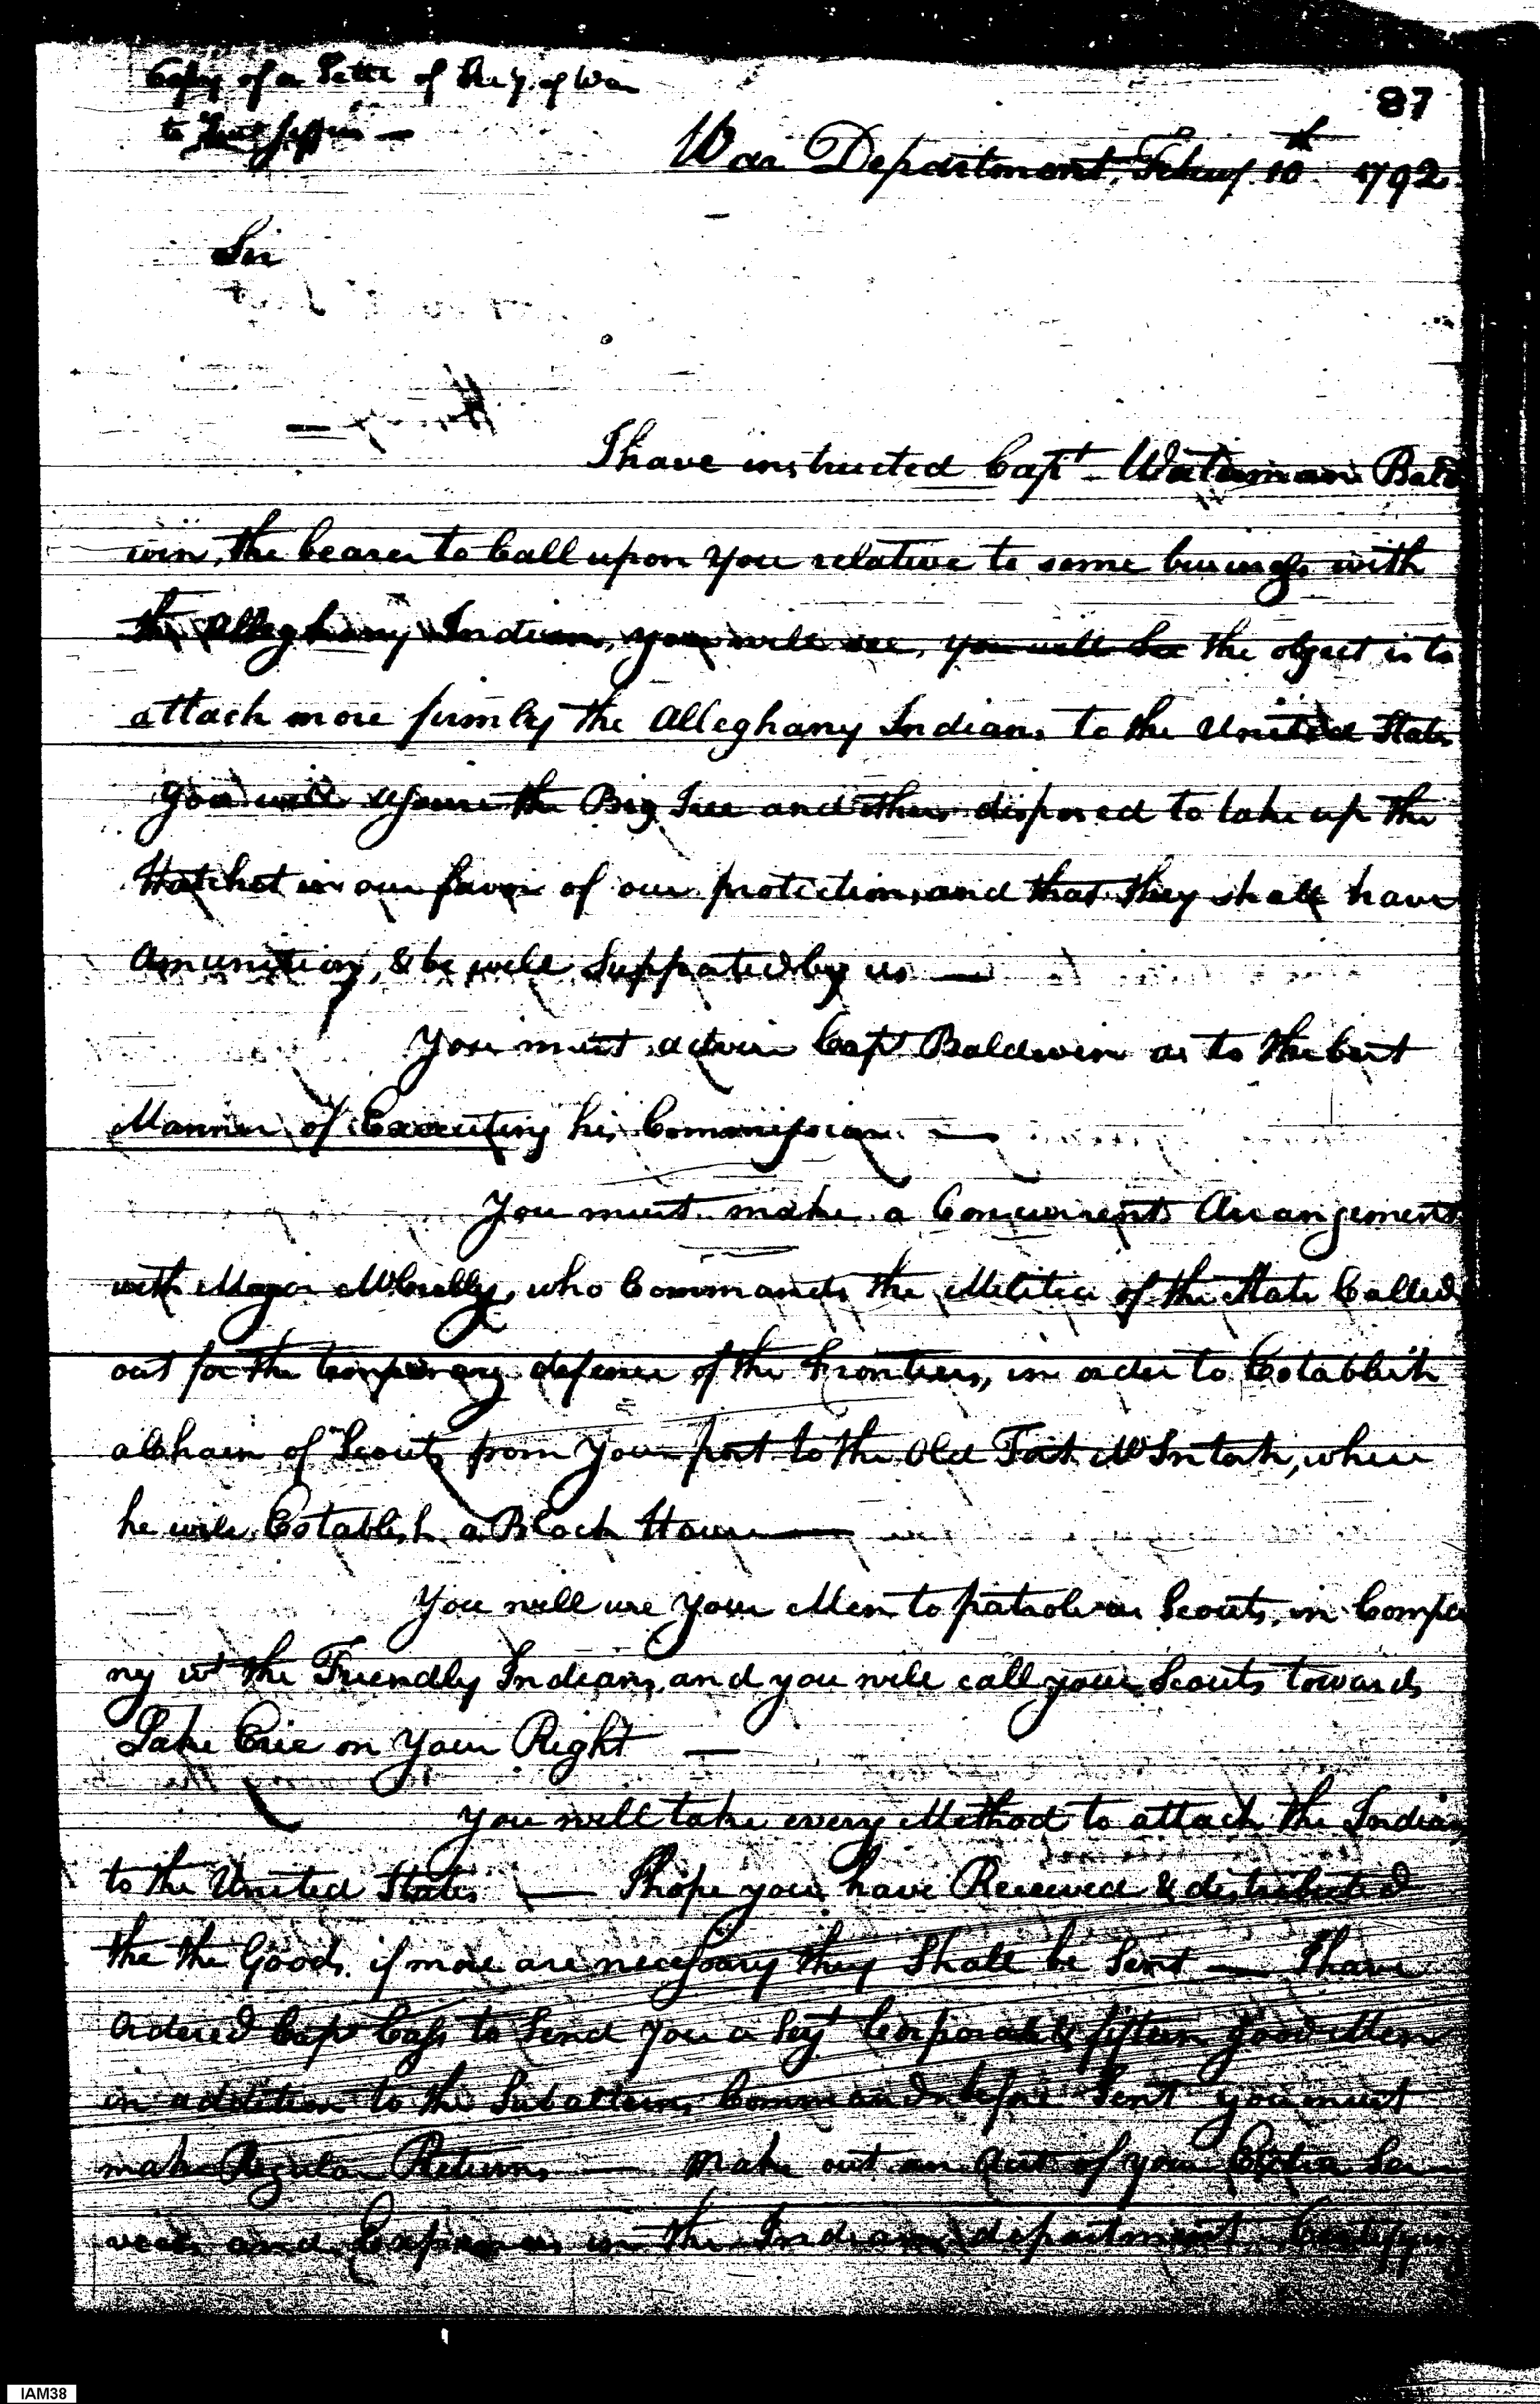 Copy of a Letter of Secy. of War
to Lieut Jeffers —
87
War Department, Feb'uy. 10th 1792
Sir
I have instructed Capt. Waterman Bald
win, the bearer to Call upon you relative to some business with
the Alleghany Indians, you will see, you will See the object is to
attach more firmly the Alleghany Indians to the United States
You will assure the Big Tree and others disposed to take up the
Hatchet in our favor of our protection, and that they shall have
Amunition, & be well Supported by us —
You must advise Capt Baldwin as to the best
Manner of Executing his Commission. —
You must make a Concurrent Arrangement
with Major McCully, who Commands the Militia of the State Called
out for the temporary defence of the Frontiers, in order to Establish
a Chain of Scouts from Your post to the Old Fort McIntosh, where
he will Establish a Block House —
You will use Your Men to patrole as Scouts, in Compa
ny wt the Friendly Indians, and you will call your Scouts towards
Lake Erie on Your Right —
You will take every Method to attach the Indians
to the United States — I hope you have Received & distributed
the the Goods. if more are necessary they Shall be Sent — I have
Ordered Capt Cass to Send you a Sejt Corporal & fifteen good Men
in addition to the Subalterns Command before Sent you must
make Regular Returns — Make out an Acct of your Extra Ser
vices and Expences in the Indian department
IAM38